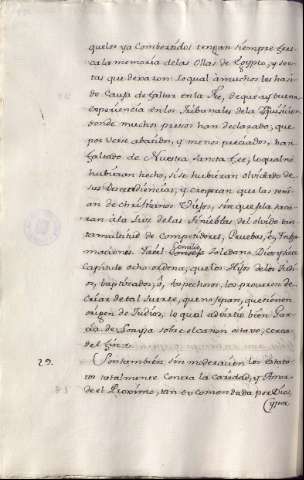 quelos ya Combertidos tengan siempre fres-
ca la memoria delas Ollas de Egypto, y sec-
tas que dexaron lo qual a muchos les ha si-
do Causa de faltar en la Fee, de que ay buena
experiencia en los Tribunales de la Ynquisicion
donde muchos presos han declarado, que
por verse abatidos, y menos preciados, han
faltado de Nuestra Santa Fee, lo qual no
hubieran hecho, si se hubieran olvidado de
sus Descendencias, y creyeran que las tenian
de christianos Viejos, sin que
a la Luz de las tinieblas del olvido tan
ta multitud de Competidores, Pruebas, è, Infor
maciones. Y a el Concilio Toledano
Capitulo ocho ordena, que los Hijos de los Judi-
os, baptizados, ò, sospechosos, los procuren de
criar de tal suerte, que no sepan, que tienen
origen de Judios, lo qual advirtio bien Gar-
cia de Loaysa sobre el canon octavo, cerca
del fin.
29. Son tambien sin moderacion los Estatu-
tos totalmente Contra la caridad, y Amor
de el Proximo, tan en comendada por Dios,